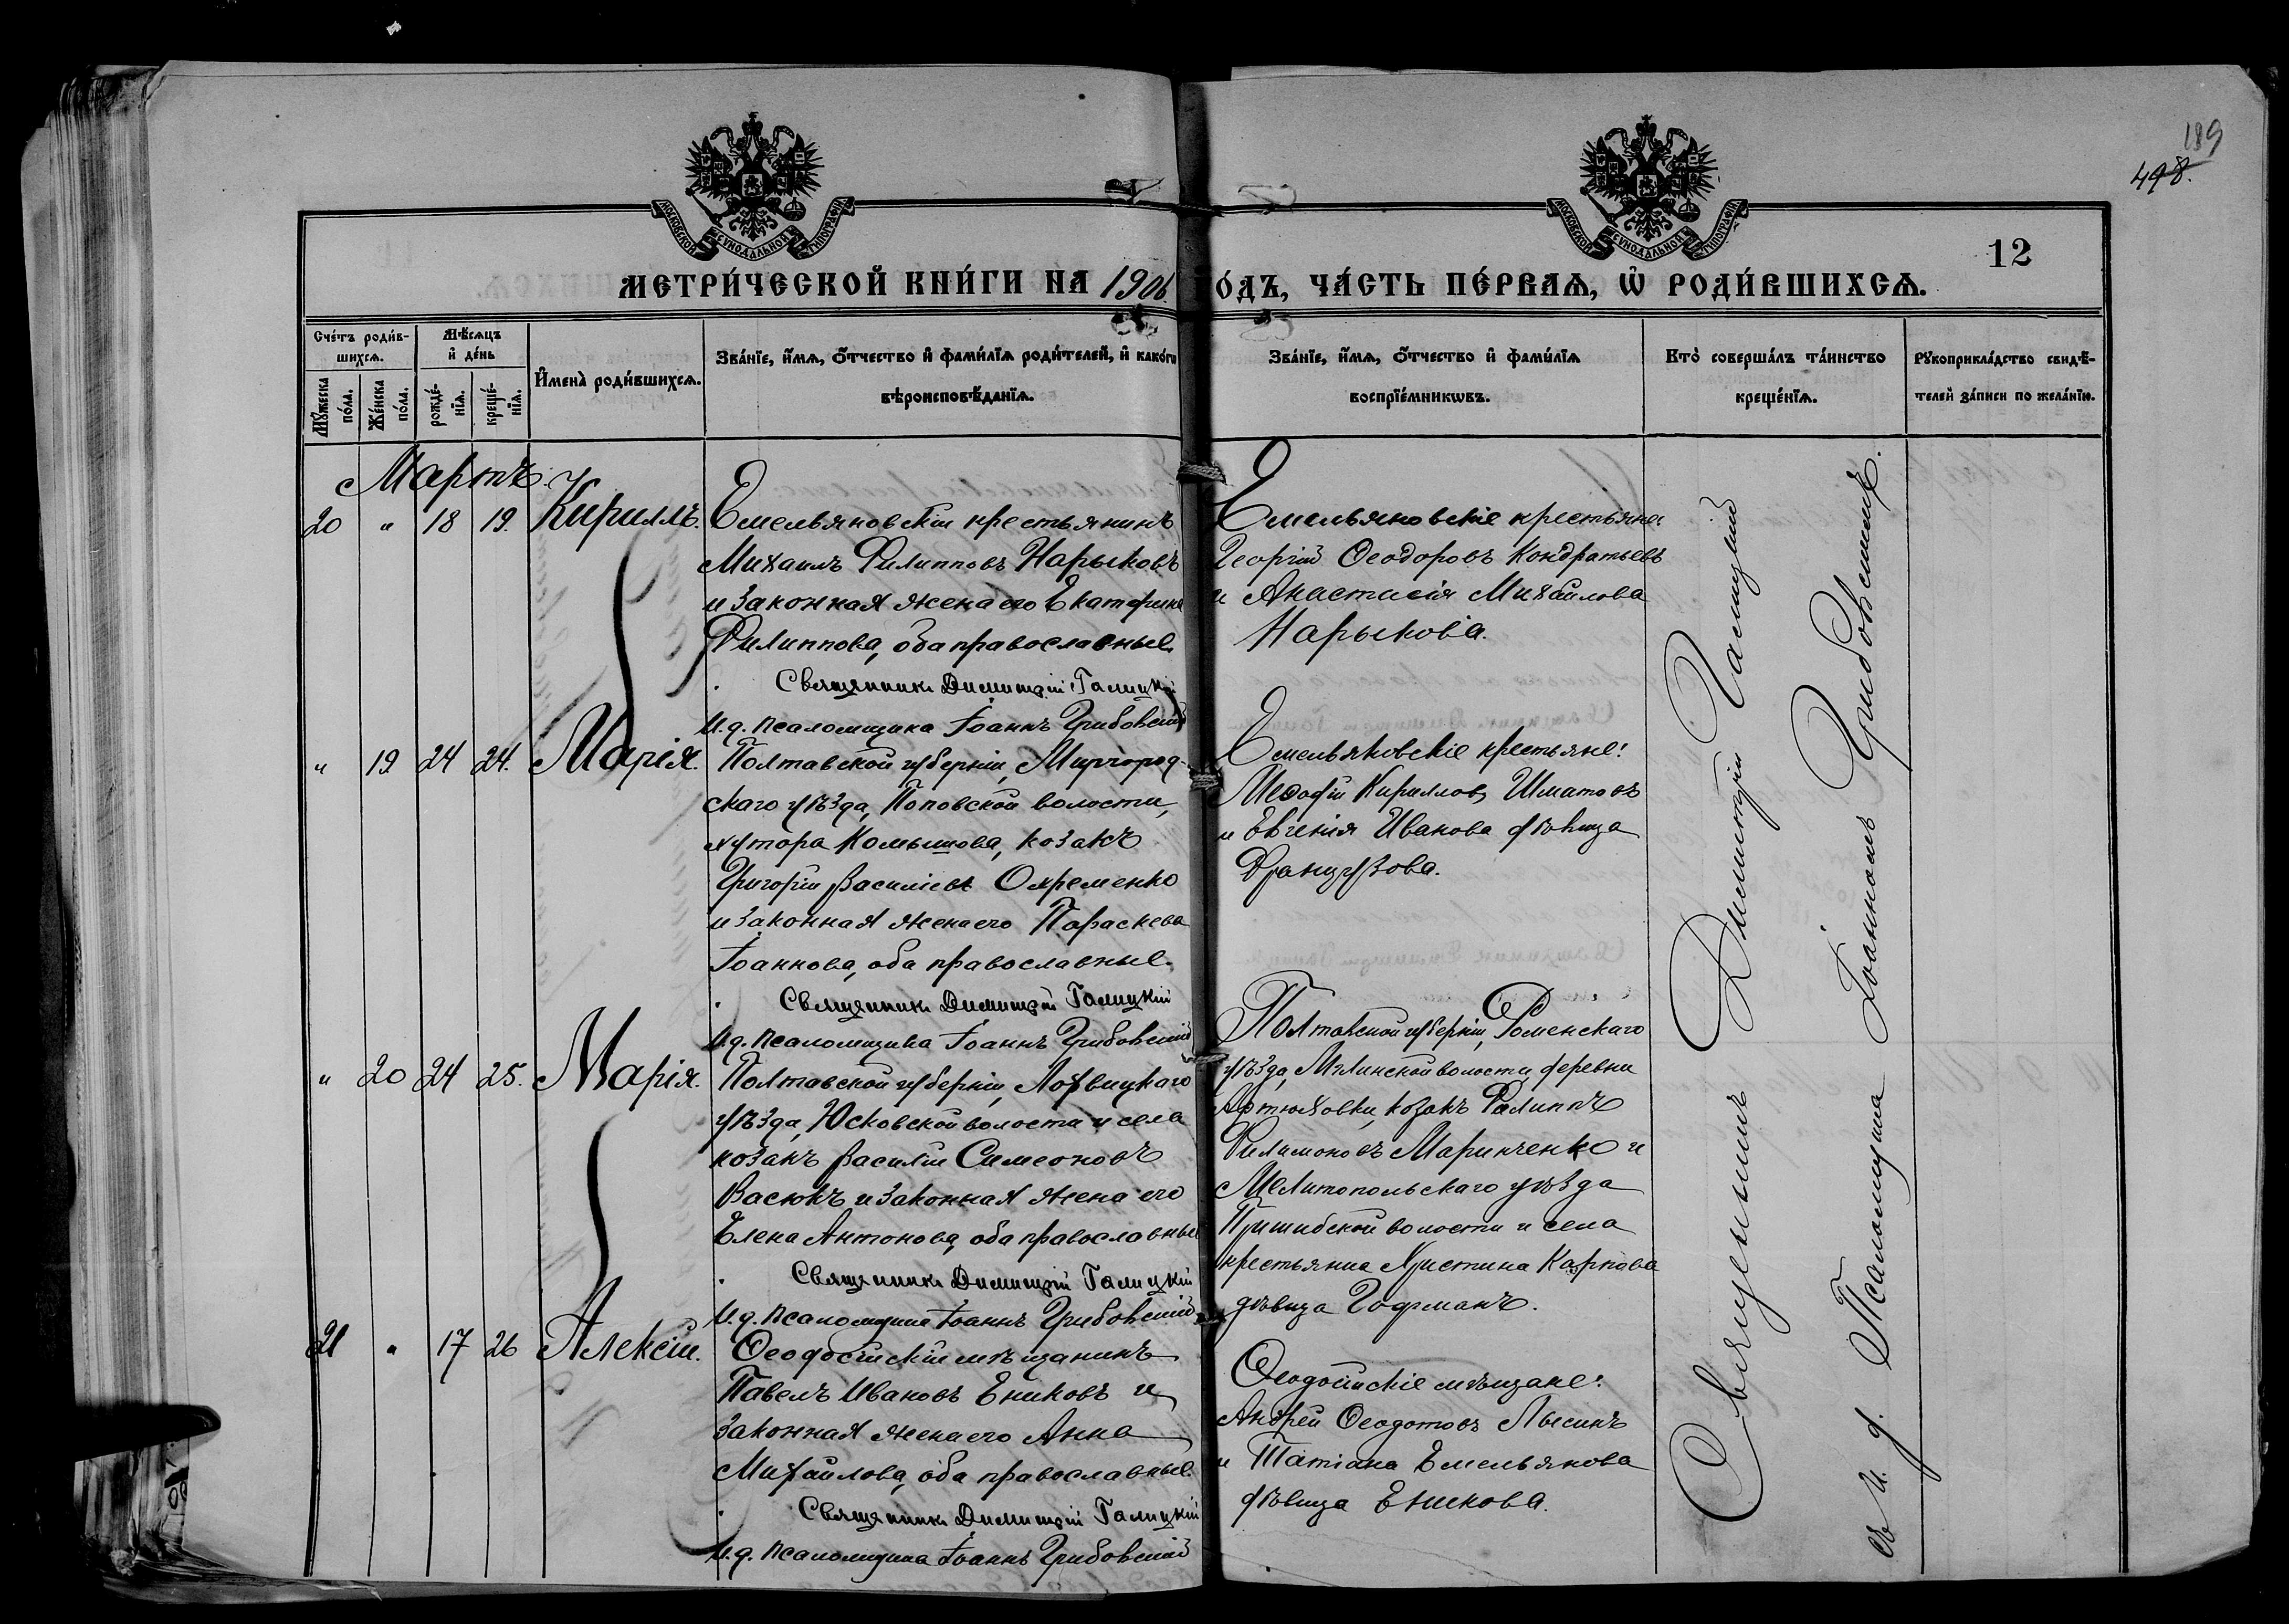 189
498.
12
МОСКОВСКОЙ СѴНОДАЛЬНОЙ ТИПОГРАФІИ
МОСКОВСКОЙ СѴНОДАЛЬНОЙ ТИПОГРАФІИ
МЕТРИ́ЧЕСКОЙ КНИ́ГИ НА 1906 ОДЪ, ЧА́СТЬ ПЕ́РВАѦ, Ѡ РОДИ́ВШИХСѦ.
Сче́тъ роди́в-
шихсѧ.
Мѣ́сѧцъ
и҆ де́нь
Мꙋ́жеска
по́ла.
Же́нска
по́ла.
рожде́-
нїѧ.
креще́-
нїѧ.
И҆мена̀ роди́вшихсѧ.
Зва́нїе, и҆́мѧ, ѻ҆́тчество и҆ фамі́лїѧ роди́телей, и҆ како́гѡ
вѣроисповѣ́данїѧ.
Зва́нїе, и҆́мѧ, ѻ҆́тчество и҆ фамі́лїѧ
воспрїе́мникѡвъ.
Кто̀ соверша́лъ та́инство
креще́нїѧ.
Рꙋкоприкла́дство свидѣ́-
телей за́писи по жела́нїю.
Мартъ.
20 " 18 19. Кириллъ.
Емельяновскій крестьянинъ
Михаилъ Филипповъ Нарыковъ
и законная жена его Екатерина
Филиппова, оба православные.
Священникъ Димитрій Галицкій
И. д. псаломщика Іоаннъ Грибовскій
Емельяновскіе крестьяне:
Георгій Ѳеодоровъ Кондратьевъ
и Анастасія Михаилова
Нарыкова.
" 19 24 24. Марія.
Полтавской губерніи, Миргород-
скаго уѣзда, Поповской волости,
хутора Комышова, козакъ
Григорій Василіевъ Охременко
и законная жена его Параскева
Іоаннова, оба православные.
Священникъ Димитрій Галицкій
И. д. псаломщика Іоаннъ Грибовскій
Емельяновскіе крестьяне:
Меѳодій Кирилловъ Шматовъ
и Евгенія Иванова дѣвица
Французова.
" 20 24 25. Марія.
Полтавской губерніи, Лохвицкаго
уѣзда, Юсковской волости и села
козакъ Василій Симеоновъ
Васюкъ и законная жена его
Елена Антонова, оба православные
Священникъ Димитрій Галицкій
И. д. псаломщика Іоаннъ Грибовскій
Полтавской губерніи, Роменскаго
уѣзда, волости, деревни
Артюховки, козакъ Филиппъ
Филимоновъ Маринченко и
Мелитопольскаго уѣзда
Пришибской волости и села
крестьянка Христина Карпова
дѣвица Гофманъ.
21 " 17 26 Алексій.
Ѳеодосійскій мѣщанинъ
Павелъ Ивановъ Ениковъ и
законная жена его Анна
Михайлова, оба православные.
Священникъ Димитрій Галицкій
И. д. псаломщика Іоаннъ Грибовскій
Ѳеодосійскіе мѣщане:
Андрей Ѳеодотовъ Лысинъ
и Татіана Емельянова
дѣвица Еникова.
Священникъ Димитрій Галицкій
съ И. д. Псаломщика Іоанномъ Грибовскимъ.